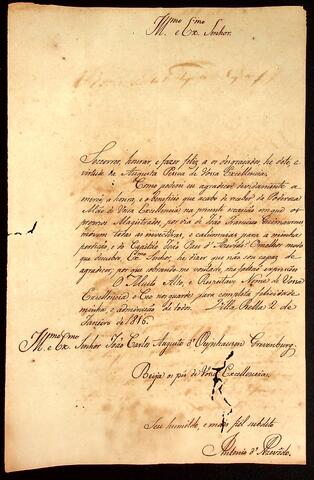 Illmo Exmo
e Ex. Senhor.
Soccorrer, honrar, e fazer feliz a os desgraçados, he dote, e
virtude da Augusta Pessoa de Vossa Excellencia.
Como poderei eu agradecer devidamente a
mercê, a honra, e o beneficio que acabo de receber da Poderoza
Mão de Vossa Excellencia na prezente occazião em que os
provaz Magistrados, Guimaraens
movem todas as invectivas, e calumnias para a minha
perdição, e do Capitão João Paes d'Azevedo? O melhor modo
que descubro, Exmo Senhor, he dizer que não sou capaz de
agradecer, por que sobrando-me vontade, me faltão expressões
O Muito Alto, e Respeitavel Nome de Vossa
Excellencia o Ceo nos guarde para completa felicidade
minha, e admiração de todos. Villa Bella 2 de
Janeiro de 1816.
Illmo Exmo
e Ex. Senhor João Carlos Augusto d'Oeynhausen Gravenburg.
Beija os pés de Vossa Excellencia
Seu humilde, e mais fiel subdito
Antonio d'Azevedo.